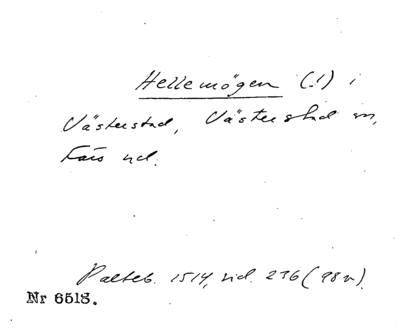 Hellemögen (!) i
Västerstad, Västerstad sn,
Färs hd.
Palteb. 1514, sid. 236 (98v).
Nr 6518.